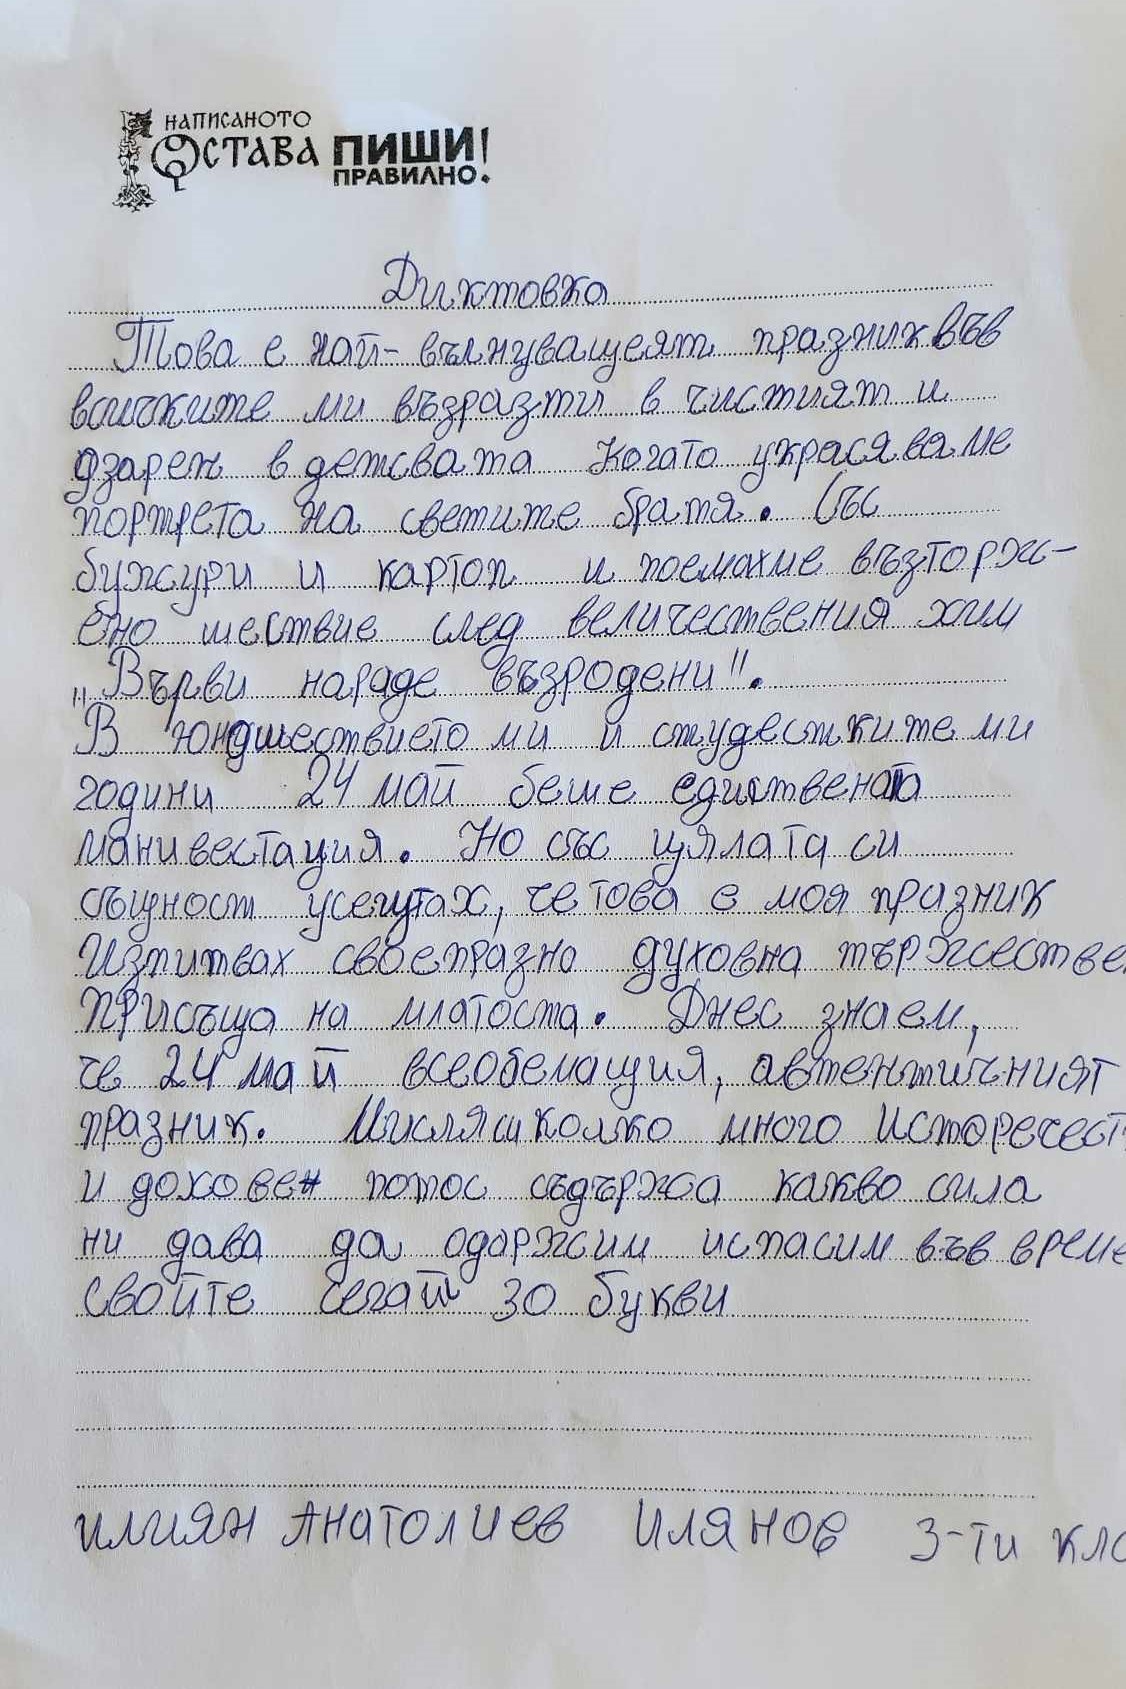 НАПИСАНОТО
ОСТАВА ПИШИ!
ПРАВИЛНО.
Диктовка
Това е най-вълнуващеят празник във
всичките ми възразти в чистият и
озарен в детсвата Когато украсяваме
портрета на светите братя. Със
бужури и картоп и поемахме възторж-
ено шествие след величествения хим
„Върви нараде възродени".
В юношествието ми и студесткитеми
години 24 май беше едиствената
манивестация. Но със цялата си
същност усещтах, че това е моя празник
Изпитвах своепразно духовна търже
Присъща на млатоста. Днес знаем,
че 24 май всеобемащия, автентичният
празник. Мисляси колко много
и доховен потос съдържа какво сила
ни дава да одаржим испасим във
свойте сегай 30 букви
илиян Анатолиев Илянов 3-ти